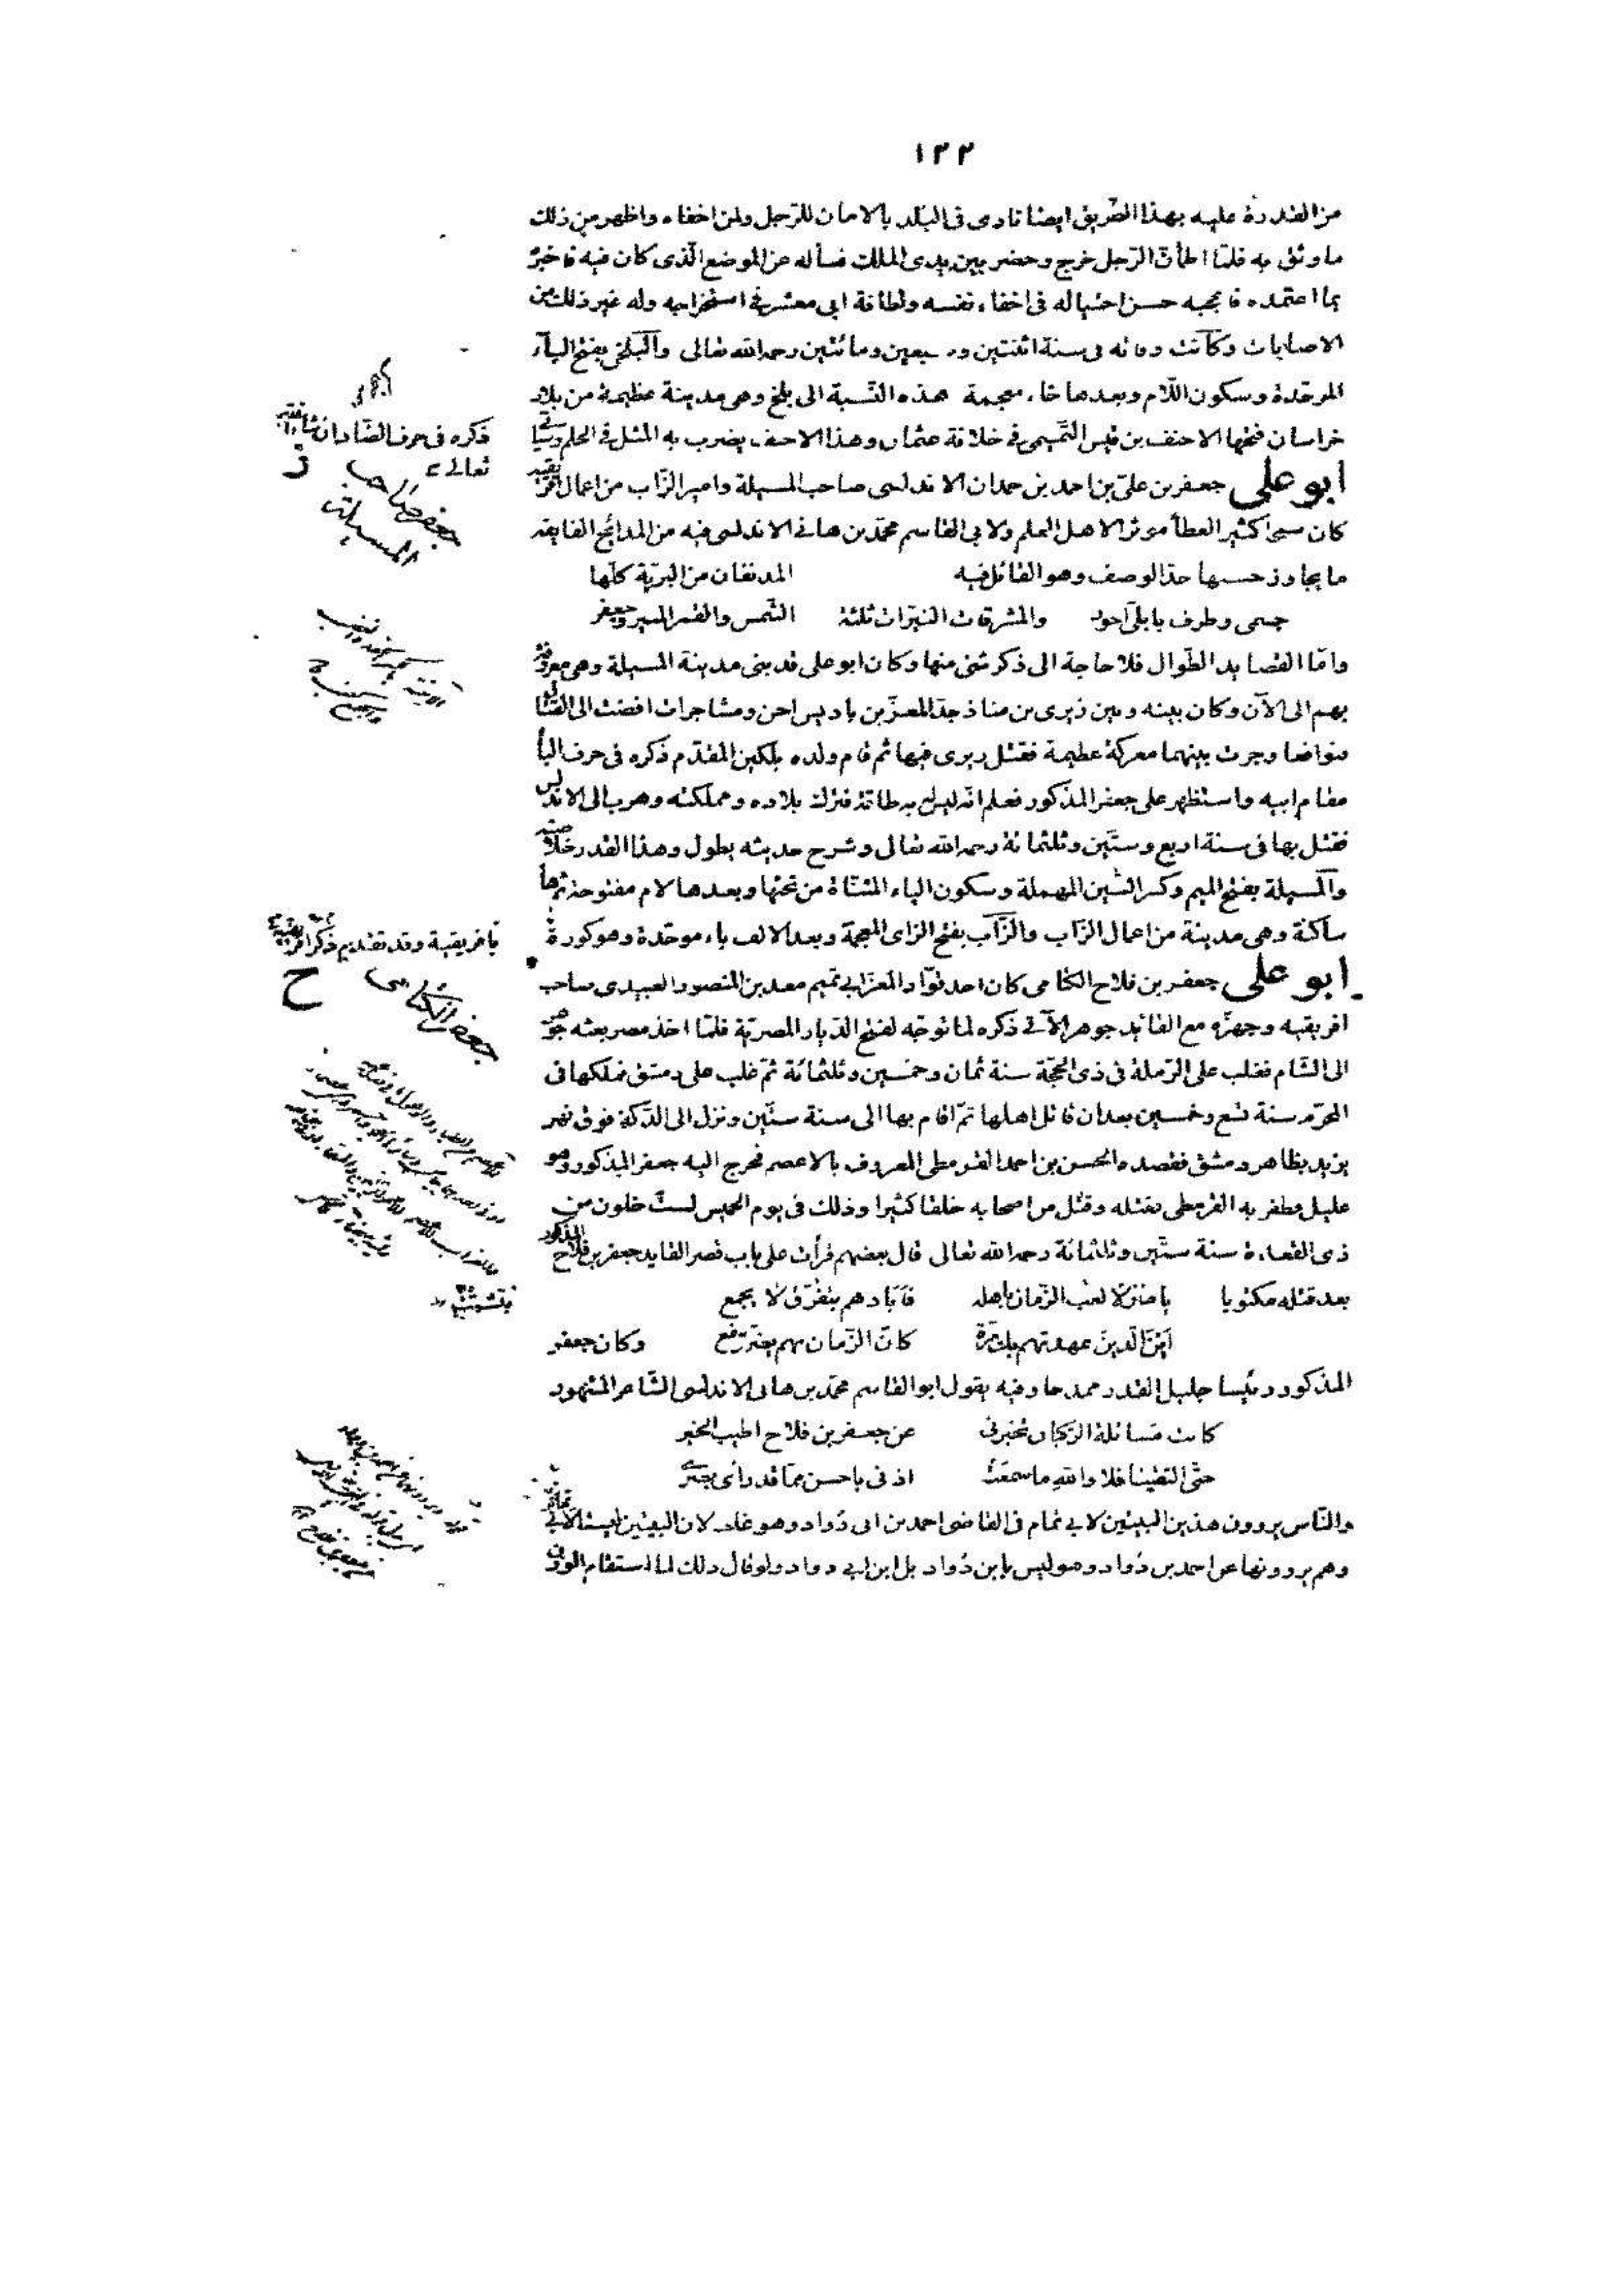 ١٢٢
من القدرة عليه بهذا الطريق ايضا نادى فى البلد بالامان للرجل ولمن اخفاه واظهر من ذلك
ما وثق به فلمّا اطمأنّ الرّجل خرج وحضر بين يدى الملك فسأله عن الموضع الّذى كان فيه فاخبره
بما اعتمده فاعجبه حسن احتياله فى اخفاء نفسه ولطافة ابى معشر فى استخراجه وله غير ذلك من
الاصابات وكانت وفاته فى سنة اثنتين وسبعين ومائتين رحمه الله تعالى والبلخى بفتح الباء
الموحّدة وسكون اللّام وبعدها خاء معجمة هذه النّسبة الى بلخ وهى مدينة عظيمة من بلاد
خراسان فتحها الاحنف بن قيس التّميمى فى خلافة عثمان وهذا الاحنف يضرب به المثل فى الحلم وسيأتى
ذكره فى حرف الضّاد ان شاء الله تعالى
ابو على جعفر بن علىّ بن احمد بن حمدان الاندلسى صاحب المسيلة وامير الزّاب من اعمال افريقية
جعفر صاحب المسيلة
كان سمحا كثير العطأ موثرا لاهل العلم ولابى القاسم محمّد بن هانى الاندلسى فيه من المدائح الفايقه
ما يجاوز حسنها حدّ الوصف وهو القائل فيه المدنفان من البريّة كلّها
جسمى وطرف بابلىّ احور والمشرقات النيّرات ثلثة الشّمس والقمر المنير وجعفر
وامّا القصايد الطّوال فلا حاجة الى ذكر شئ منها وكان ابو على قد بنى مدينة المسيلة وهى معروفة
بهم الى الآن وكان بينه وبين زيرى بن مناذ جدّ المعزّ بن باديس احن ومشاجرات افضت الى القتال
فتواقعا وجرت بينهما معركة عظيمة فقتل زيرى فيها ثم قام ولده بلكين المقدّم ذكره فى حرف البأ
مقام ابيه واستظهر على جعفر المذكور فعلم انّه ليس له به طاقة فترك بلاده ومملكته وهرب الى الاندلس
فقتل بها فى سنة اربع وستّين وثلثمائة رحمه الله تعالى وشرح حديثه يطول وهذا القدر خلاصته
والمسيلة بفتح الميم وكسر السّين المهملة وسكون الياء المثنّاة من تحتها وبعدها لام مفتوحة ثمّ هأ
ساكنة وهى مدينة من اعمال الزّاب والزّاب بفتح الزاى المعجمة وبعد الالف باء موحّدة وهو كورة
بافريقية وقد تقدّم ذكر افريقية
ابو على جعفر بن فلاح الكتامى كان احد قوّاد المعزّ ابى تميم معد بن المنصور العبيدى صاحب
جعفر الكتامى
افريقيه وجهزّه مع القائد جوهر الآتى ذكره لمّا توجّه لفتح الدّيار المصريّة فلمّا اخذ مصر بعثه جوهر
الى الشّام فغلب على الرّملة فى ذى الحجّة سنة ثمان وخمسين وثلثمائة ثمّ غلب على دمشق فملكها فى
المحرّم سنة تسع وخمسين بعد ان قاتل اهلها ثمّ اقام بها الى سنة ستّين ونزل الى الدّكة فوق نهر
يزيد بظاهر دمشق فقصده الحسن بن احمد القرمطى المعروف بالاعصم فخرج اليه جعفر المذكور وهو
عليل فظفر به القرمطى فقتله وقتل من اصحابه خلقا كثيرا وذلك فى يوم الخميس لستّ خلون من
ذى القعدة سنة ستّين وثلثمائة رحمه الله تعالى قال بعضهم قرأت على باب قصر القايد جعفر بن فلاح المذكور
بعد قتله مكتوبا يا منزلا لعب الزّمان باهله فأبادهم بتفرّق لا يجمع
اين الّذين عهدتهم بك مرّة كان الزّمان بهم يضرّ وينفع وكان جعفر
المذكور رئيسا جليل القدر ممدحا وفيه يقول ابو القاسم محمّد بن هانى الاندلسى الشّاعر المشهور
كانت مسائلة الرّكبان تخبرنى عن جعفر بن فلاح اطيب الخبر
حتّى التقينا فلا والله ما سمعت اذنى باحسن ممّا قد رأى بصرى
والنّاس يروون هذين البيتين لابى تمام فى القاضى احمد بن ابى دؤاد وهو غلط لان البيتين ليسا لابى تمام
وهم يروونهما عن احمد بن دؤاد وهو ليس بابن دؤاد بل ابن ابى دواد ولو قال ذلك لما استقام الوزن